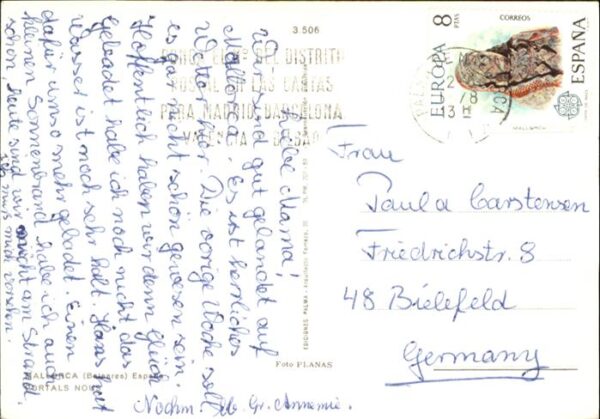 3.506
PONGA EL Nº DEL DISTRITO
POSTAL EN LAS CARTAS
PARA MADRID BARCELONA
VALENCIA Y BILBAO
CORREOS
EUROPA 8 PTAS
ESPAÑA
MALLORCA
Liebe Mama!
Wir sind gut gelandet auf
Mallorca. Es ist herrliches
Wetter hier. Die vorige Woche soll
es gar nicht schön gewesen sein.
Hoffentlich haben wir denn Glück
Gebadet habe ich noch nicht das
Wasser ist noch sehr kalt. Hans hat
dafür umso mehr gebadet. Einen
kleinen Sonnenbrand habe ich auch
schon, heute sind wir nicht am Strand
ich muß mich vorsehen.
Nochm. lb. Gr. Annemie.
Frau
Paula Carstensen
Friedrichstr. 8
48 Bielefeld
Germany
EDICIONES PALMA
Foto PLANAS
MALLORCA (Baleares) España
PORTALS NOUS